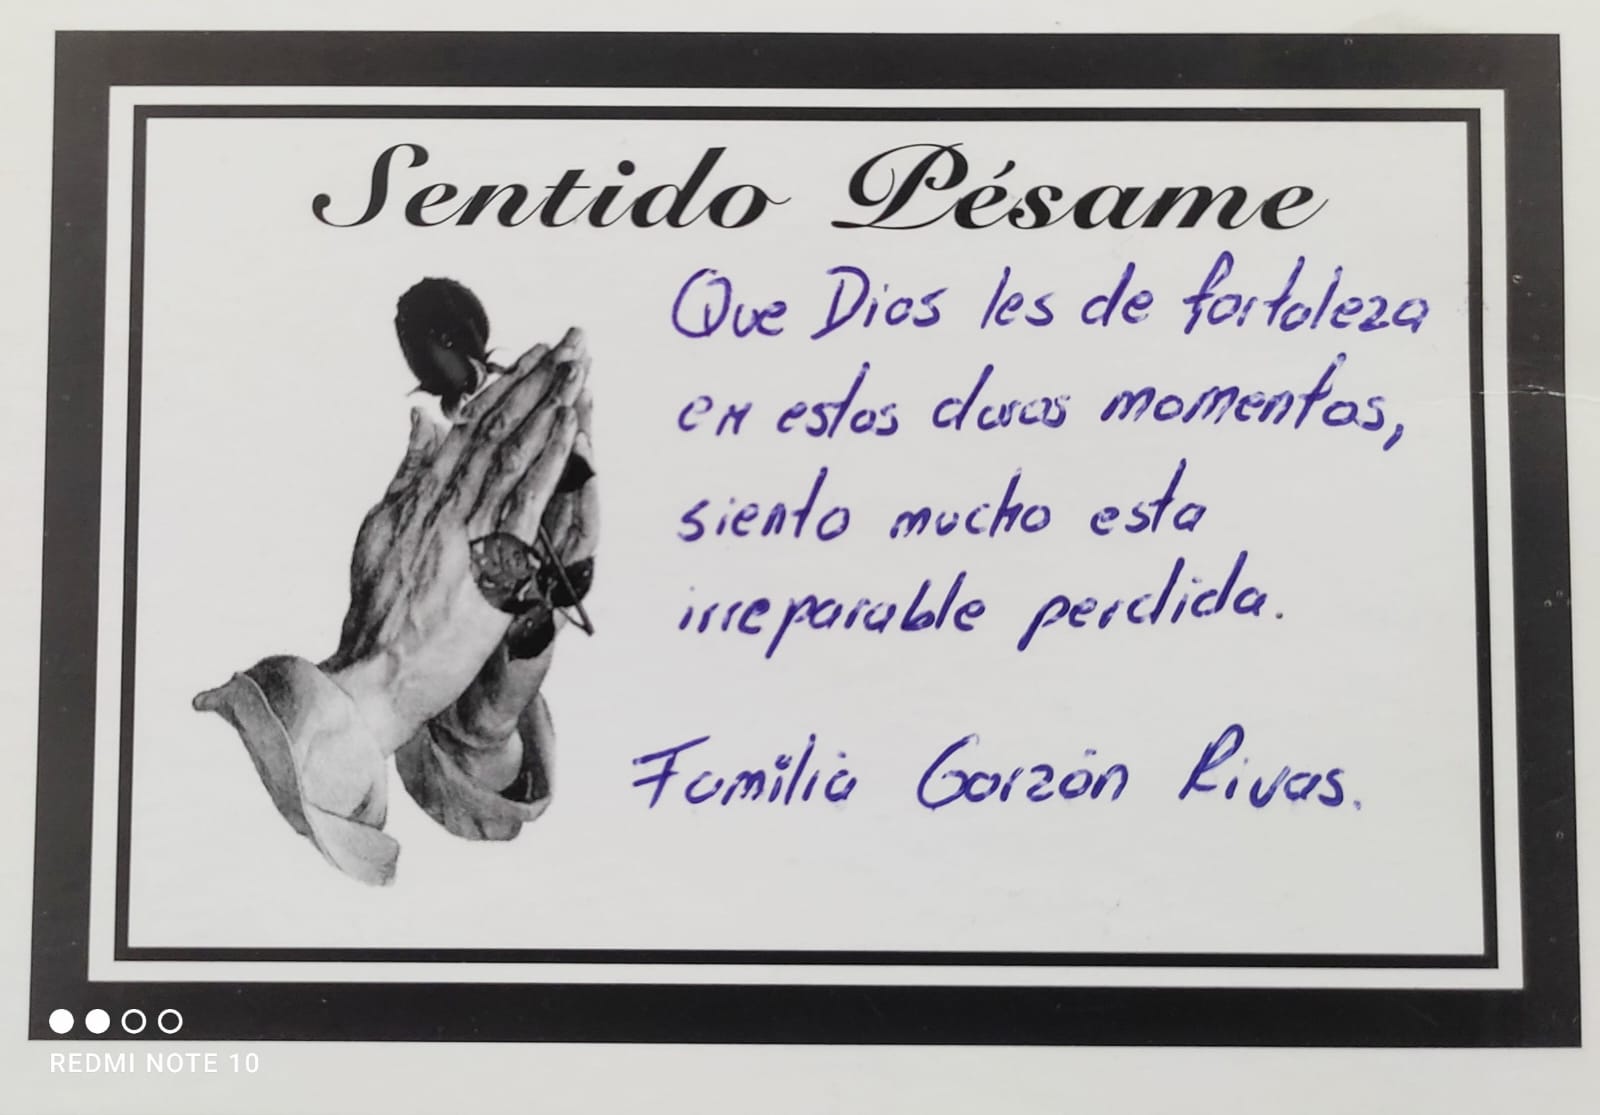 Sentido Pésame
Que Dios les de fortaleza
en estos duros momentos,
siento mucho esta
irreparable perdida.
Familia Garzón Rivas.
REDMI NOTE 10